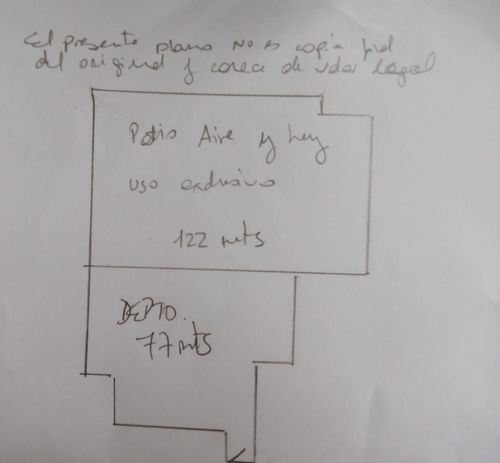 El presente plano No es copia fiel
del original y carece de valor legal
Patio Aire y luz
uso exclusivo
122 mts
DEPTO.
77 mts